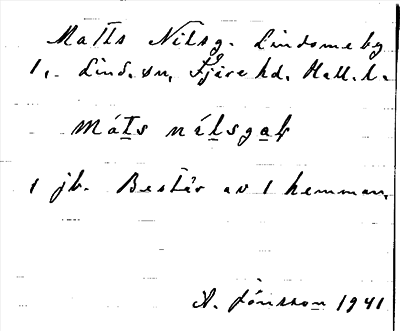 Matts Nilsg. Lindome by
1, Lind. sn, Fjäre hd. Hall. l.
máts nílsgaḷ
1 jb. Består av 1 hemman.
A. Jónsson 1941